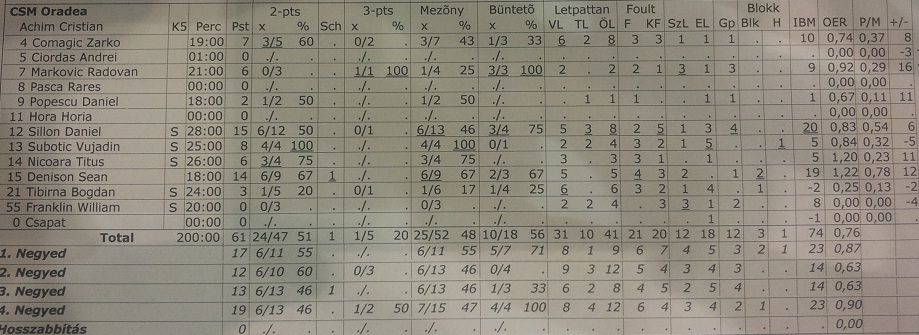 CSM Oradea 2-pts 3-pts Mezõny Büntetõ Letpattan Foult Blokk
Achim Cristian K5 Perc Pst x % Sch x % x % x % VL TL ÖL F KF SzL EL Gp Blk H IBM OER P/M +/-
4 Comagic Zarko 19:00 7 3/5 60 . 0/2 . 3/7 43 1/3 33 6 2 8 3 3 1 1 1 . . 10 0,74 0,37 8
5 Ciordas Andrei 01:00 0 ./. . . ./. . ./. . ./. . . . . . . . . . . . . 0,00 0,00 -3
7 Markovic Radovan 21:00 6 0/3 . . 1/1 100 1/4 25 3/3 100 2 . 2 2 1 3 1 3 . . 9 0,92 0,29 16
8 Pasca Rares 00:00 0 ./. . . ./. . ./. . ./. . . . . . . . . . . . . 0,00 0,00 .
9 Popescu Daniel 18:00 2 1/2 50 . ./. . 1/2 50 ./. . . 1 1 1 . . 1 1 . . 1 0,67 0,11 11
11 Hora Horia 00:00 0 ./. . . ./. . ./. . ./. . . . . . . . . . . . . 0,00 0,00 .
12 Sillon Daniel S 28:00 15 6/12 50 . 0/1 . 6/13 46 3/4 75 5 3 8 2 5 1 3 4 . . 20 0,83 0,54 6
13 Subotic Vujadin S 25:00 8 4/4 100 . ./. . 4/4 100 0/1 . 2 2 4 3 2 1 5 . . 1 5 0,84 0,32 -5
14 Nicoara Titus S 26:00 6 3/4 75 . ./. . 3/4 75 ./. . 3 . 3 3 1 . 1 . . . 5 1,20 0,23 11
15 Denison Sean 18:00 14 6/9 67 1 ./. . 6/9 67 2/3 67 5 . 5 4 3 2 . 1 2 . 19 1,22 0,78 12
21 Tibirna Bogdan S 24:00 3 1/5 20 . 0/1 . 1/6 17 1/4 25 6 . 6 3 2 1 4 . 1 . -2 0,25 0,13 -2
55 Franklin William S 20:00 0 0/3 . . ./. . 0/3 . ./. . 2 2 4 . 3 3 1 2 . . 8 0,00 0,00 -4
0 Csapat 00:00 0 ./. . . ./. . ./. . ./. . . . . . . . 1 . . . -1 0,00 0,00
Total 200:00 61 24/47 51 1 1/5 20 25/52 48 10/18 56 31 10 41 21 20 12 18 12 3 1 74 0,76
1. Negyed 17 6/11 55 ./. . 6/11 55 5/7 71 8 1 9 6 7 4 5 3 2 1 23 0,87
2. Negyed 12 6/10 60 . 0/3 . 6/13 46 0/4 . 9 3 12 5 4 3 4 3 . . 14 0,63
3. Negyed 13 6/13 46 1 ./. . 6/13 46 1/3 33 6 2 8 4 5 2 5 4 . . 14 0,63
4. Negyed 19 6/13 46 . 1/2 50 7/15 47 4/4 100 8 4 12 6 4 3 4 2 1 . 23 0,90
Hosszabbítás 0 ./. . . ./. . ./. . ./. . . . . . . . . . . . 0,00